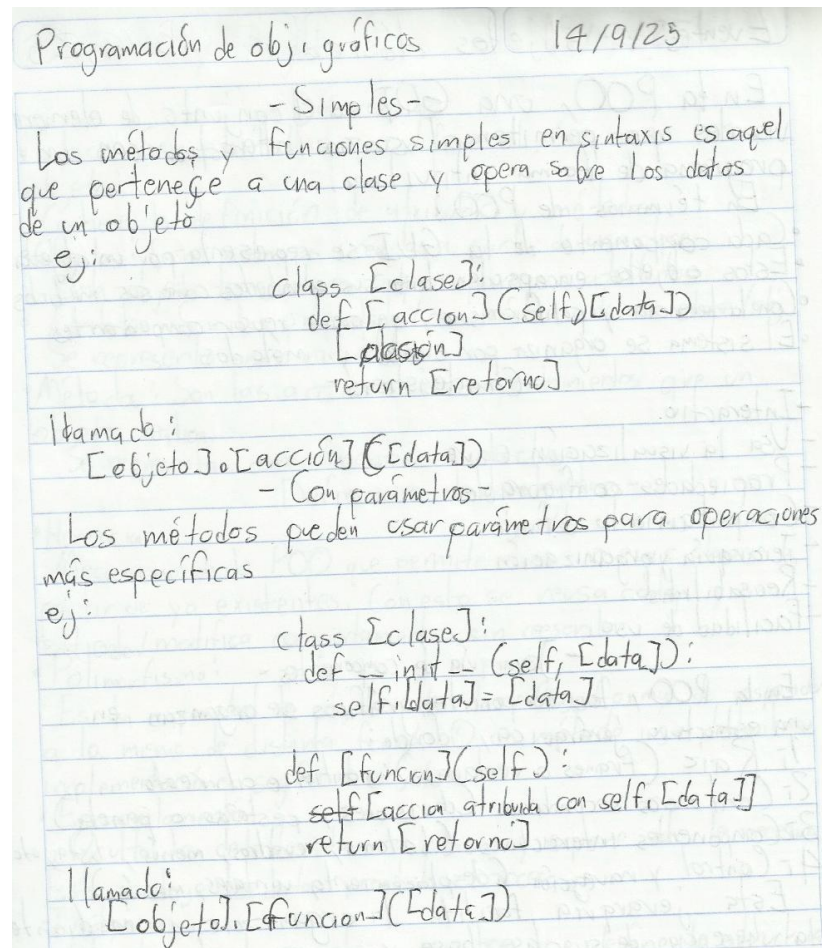 Programación de obj. gráficos 14/9/25
- Simples -
Los métodos y funciones simples en sintaxis es aquel
que pertenece a una clase y opera sobre los datos
de un objeto
ej:
class [clase]:
def [accion] (self,)[data])
[acción]
return [retorno]
llamado:
[objeto].[acción] ([data])
- Con parámetros -
Los métodos pueden usar parámetros para operaciones
más específicas
ej:
class [clase]:
def __init__ (self, [data]):
self.[data] = [data]
def [funcion](self):
self [accion atribuida con self.[data]]
return [retorno]
llamado:
[objeto].[funcion]([data])